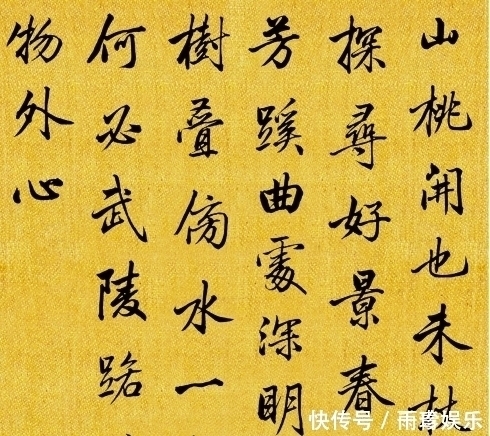 山桃開也未杖
探尋好景春
芳蹊曲處深明
樹疊傍水一
何必武陵路
物外心
快传号 / 雨娱乐